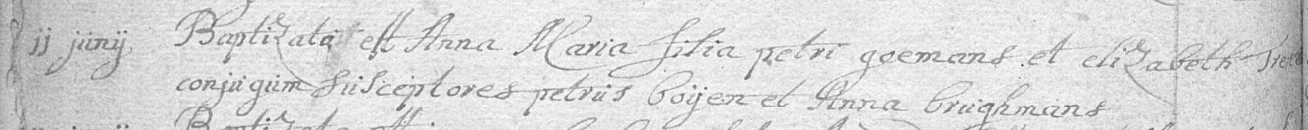 jj junij Baptizata est Anna Maria filia petri goemans et elizabeth
conjugum susceptores petrus boijen et Anna brughmans